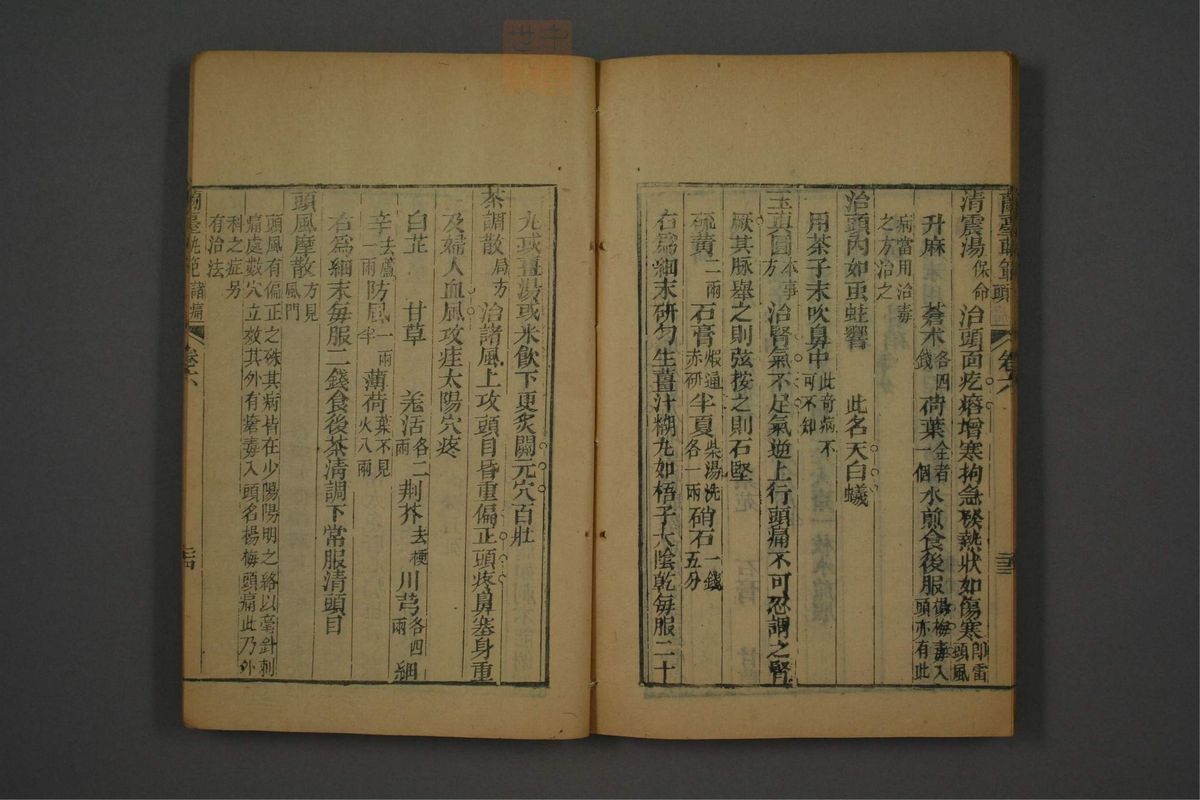 清震湯保命 治頭面疙瘩增寒拘急發熱狀如傷寒即雷頭風
升麻 蒼术各四錢 荷葉全者一個 水煎食後服楊梅毒入頭亦有此
病當用治毒之方治之
治頭內如虫蛀響 此名天白蟻
用茶子末吹鼻中此奇病不可不知
玉真圓本事方 治腎氣不足氣逆上行頭痛不可忍謂之腎
厥其脉舉之則弦按之則石堅
硫黃二兩 石膏煆通赤研 半夏柴湯洗各一兩 硝石一錢五分
右爲細末研勻生薑汁糊丸如梧子大陰乾每服二十
卷六
丸或薑湯或米飲下更炙關元穴百壯
茶調散局方 治諸風上攻頭目昏重偏正頭疼鼻塞身重
及婦人血風攻疰太陽穴疼
白芷 甘草 羌活各二兩 荆芥去梗 川芎各四兩 細
辛去蘆一兩 防風一兩半 薄荷葉不見火八兩
右爲細末每服二錢食後茶清調下常服清頭目
頭風摩散方見風門
頭風有偏正之殊其病皆在少陽陽明之絡以毫針刺
痛處數穴立效其外有瘡毒入頭名楊梅頭痛此乃外
科之症另有治法
諸痛
卷六